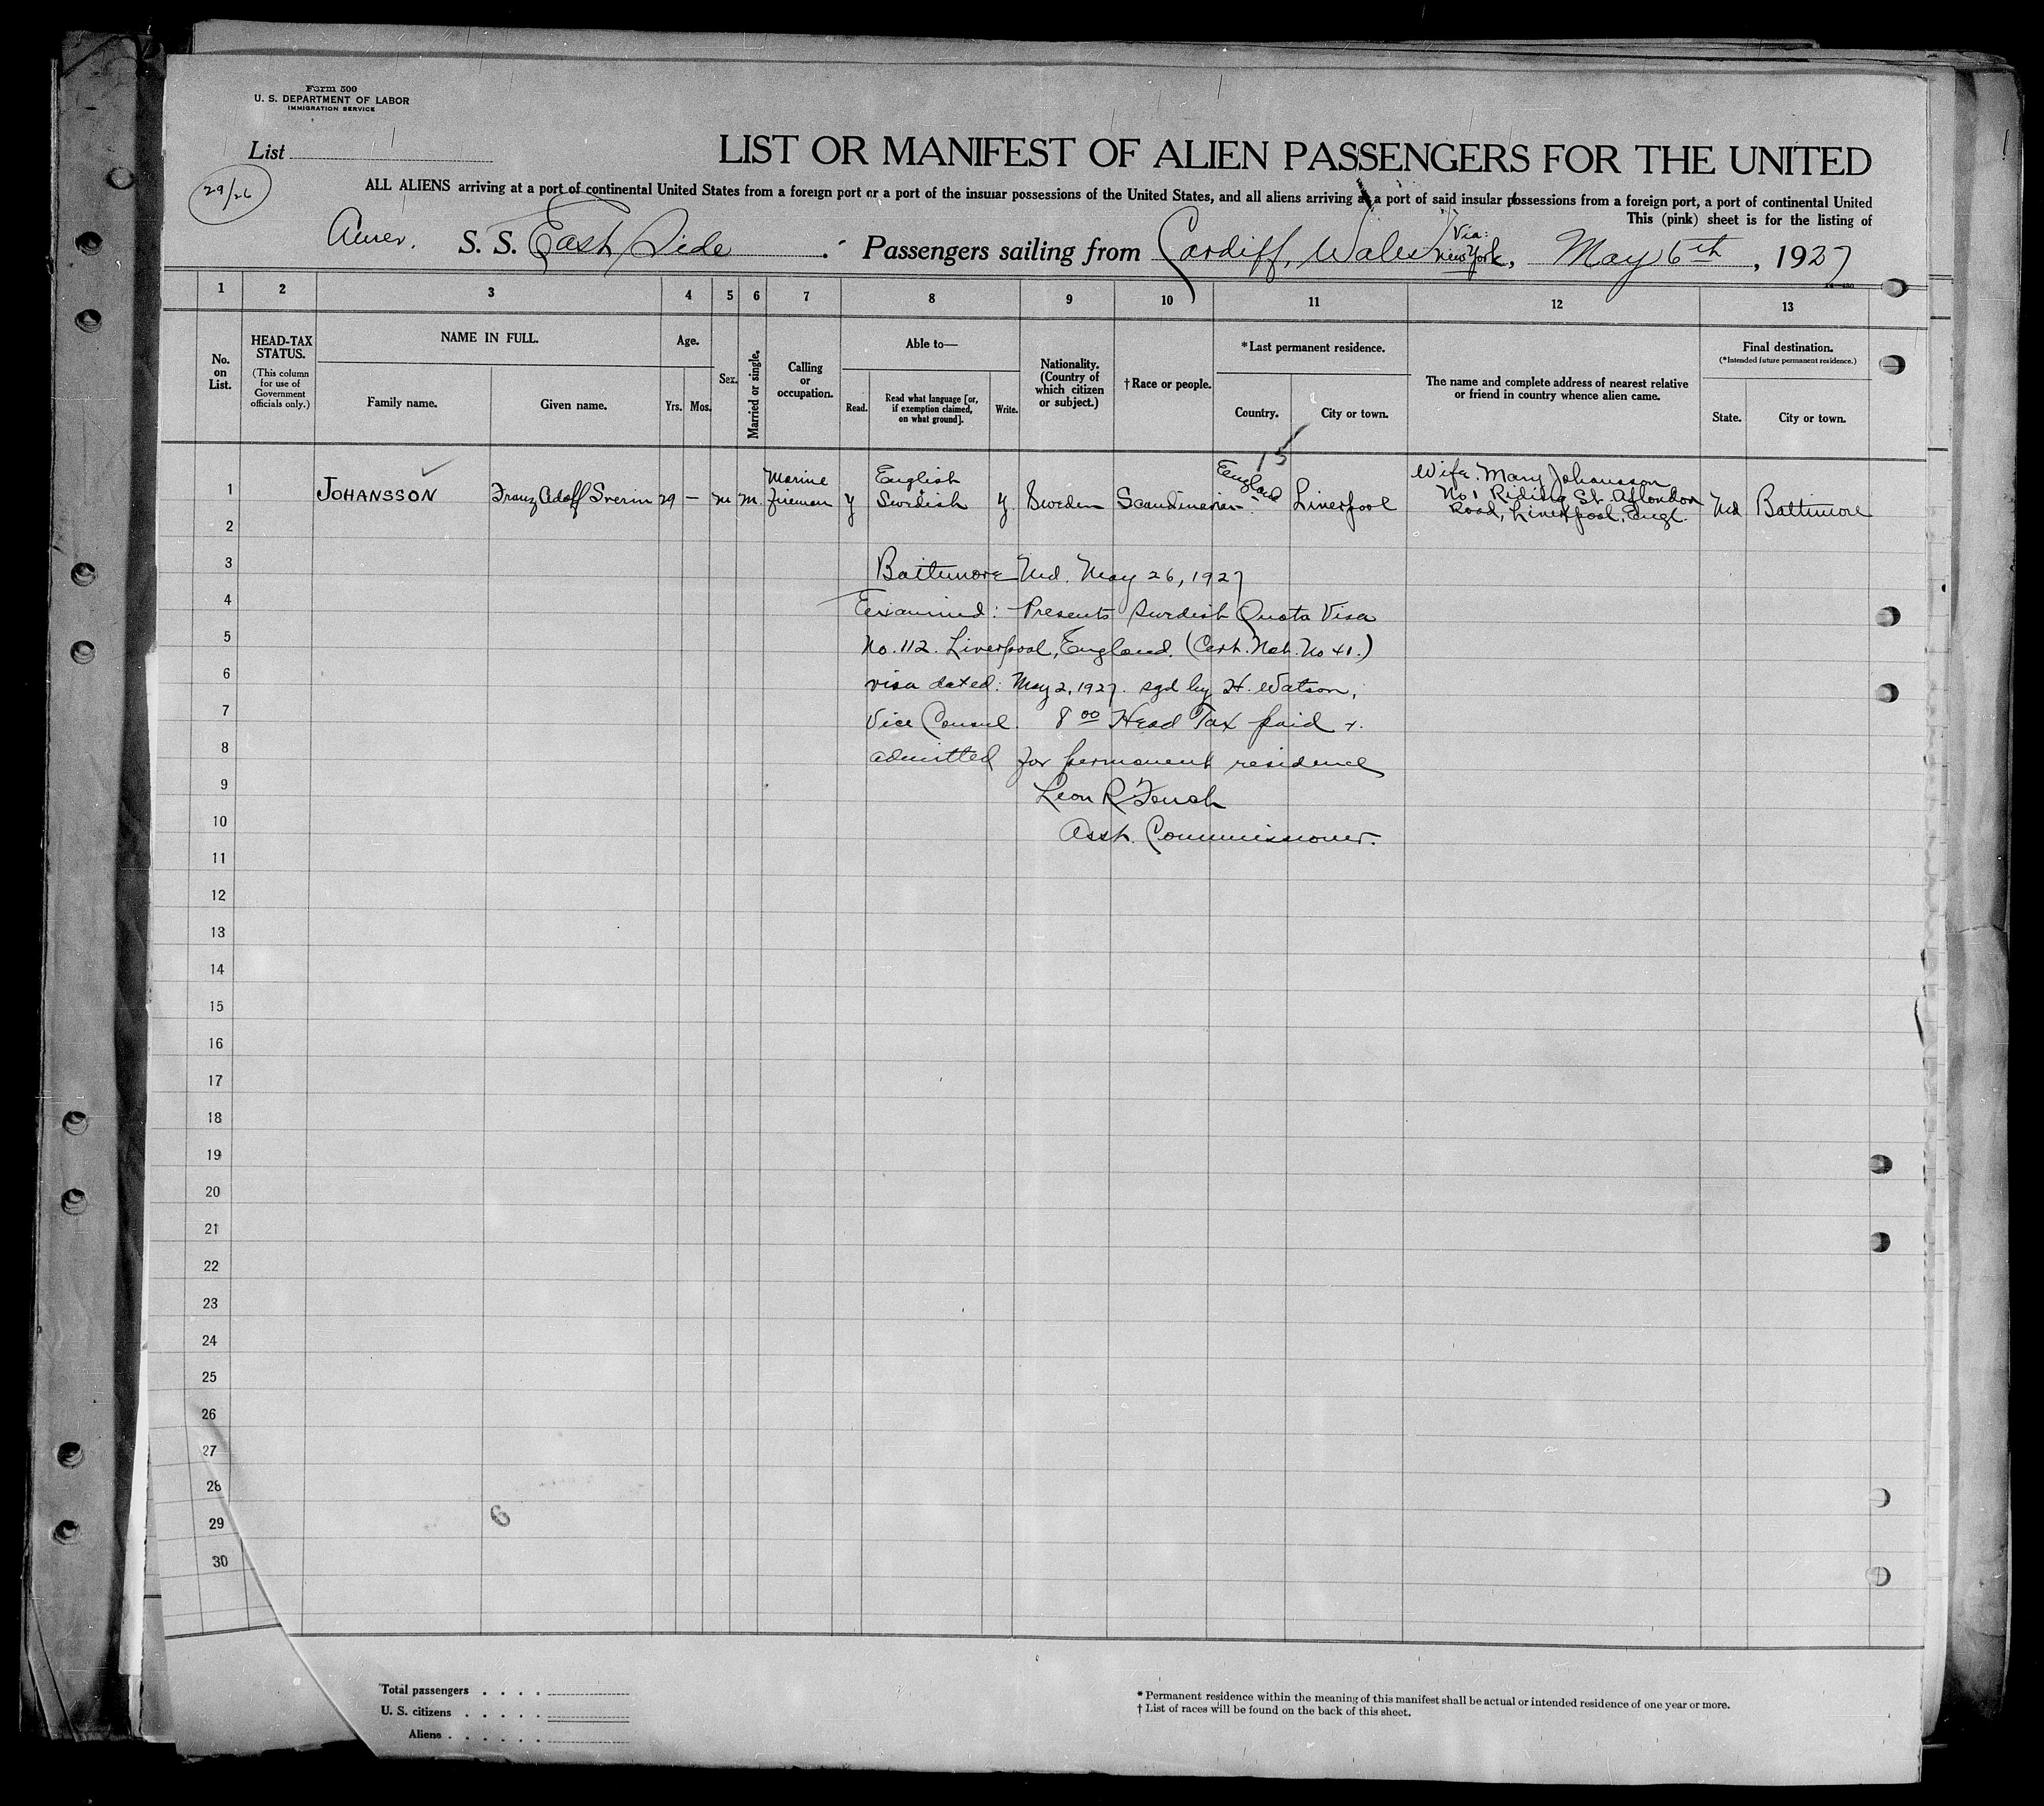 Form 500
U. S. DEPARTMENT OF LABOR
IMMIGRATION SERVICE
List
29/26
LIST OR MANIFEST OF ALIEN PASSENGERS FOR THE UNITED
ALL ALIENS arriving at a port of continental United States from a foreign port or a port of the insular possessions of the United States, and all aliens arriving at a port of said insular possessions from a foreign port, a port of continental United
This (pink) sheet is for the listing of
Amer. S. S. East Side Passengers sailing from Cardiff, Wales Via: New York, May 6th, 1927
1 2 3 4 5 6 7 8 9 10 11 12 13
No. on List.
HEAD-TAX STATUS.
(This column for use of Government officials only.)
NAME IN FULL.
Family name.
Given name.
Age.
Yrs. Mos.
Sex.
Married or single.
Calling or occupation.
Able to—
Read.
Read what language [or, if exemption claimed, on what ground].
Write.
Nationality. (Country of which citizen or subject.)
† Race or people.
*Last permanent residence.
Country.
City or town.
The name and complete address of nearest relative or friend in country whence alien came.
Final destination.
(*Intended future permanent residence.)
State.
City or town.
15
1 JOHANSSON Franz Adolf 29 — M M. Marine fireman y English Swedish y. Sweden Scandinavian England Liverpool Wife. Mary Johansson No 1 Riding St. Road, Liverpool, Engl. Md Baltimore
2
3 Baltimore Md. May 26, 1927
4 Examined: Presents Swedish Quota Visa
5 No. 112. Liverpool, England. (Cert. Nat. No 41.)
6 visa dated: May 2, 1927. sgd by H. Watson,
7 Vice Consul. 8 00 Head Tax paid +.
8 admitted for permanent residence
9 Leon R
10 Asst. Commissioner.
11
12
13
14
15
16
17
18
19
20
21
22
23
24
25
26
27
28
29
30
6
Total passengers . . . .
U. S. citizens . . . . .
Aliens . . . . . .
* Permanent residence within the meaning of this manifest shall be actual or intended residence of one year or more.
† List of races will be found on the back of this sheet.